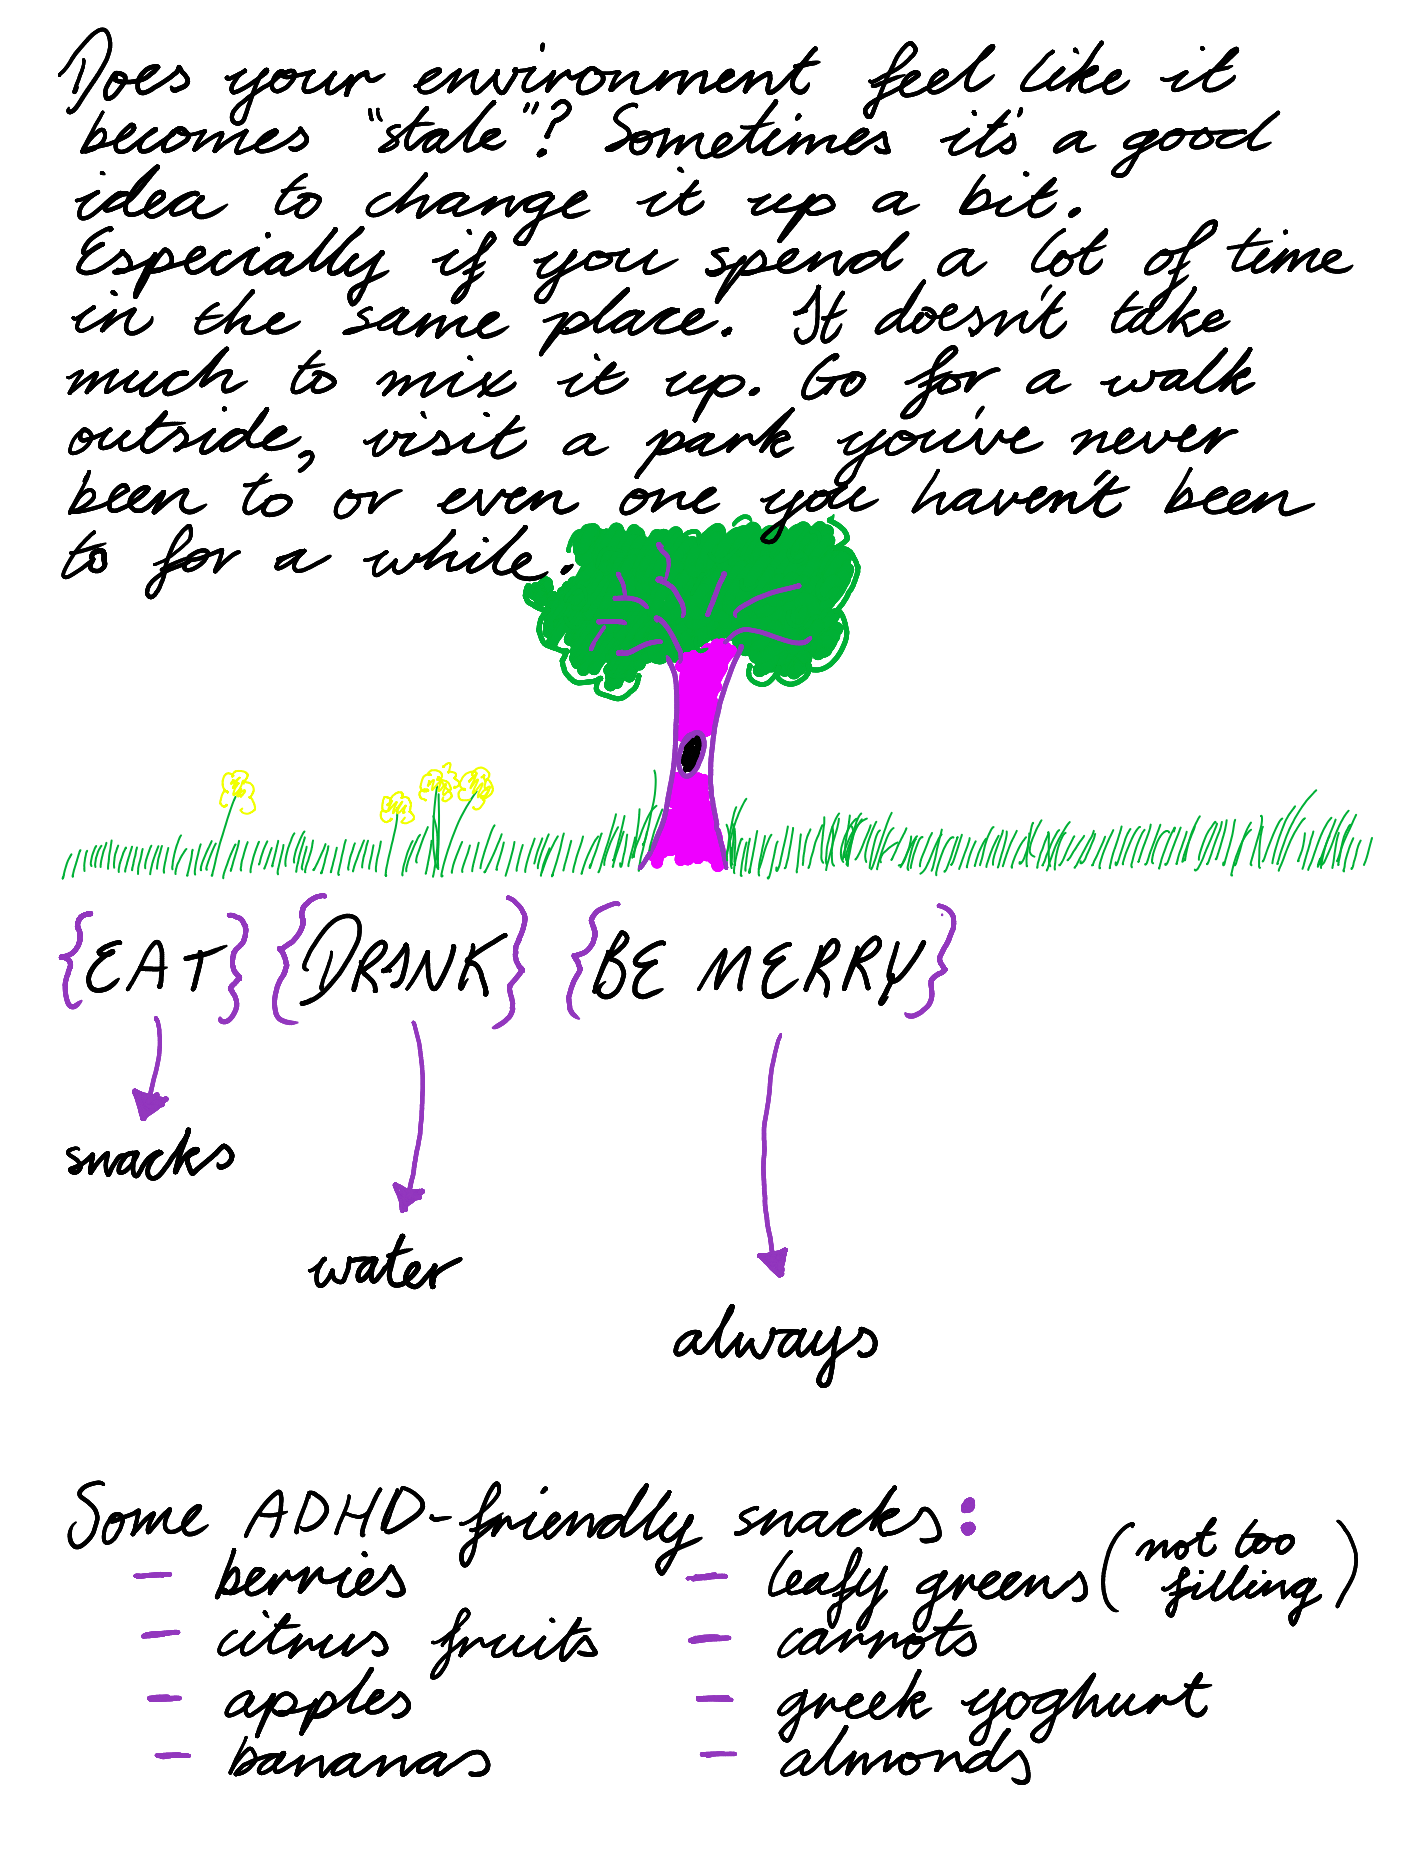 Does your environment feel like it
becomes "stale"? Sometimes it's a good
idea to change it up a bit.
Especially if you spend a lot of time
in the same place. It doesn't take
much to mix it up. Go for a walk
outside, visit a park you've never
been to or even one you haven't been
to for a while.
{EAT} {DRINK} {BE MERRY}
snacks
water
always
Some ADHD-friendly snacks:
- berries
- citrus fruits
- apples
- bananas
- leafy greens (not too filling)
- carrots
- greek yoghurt
- almonds